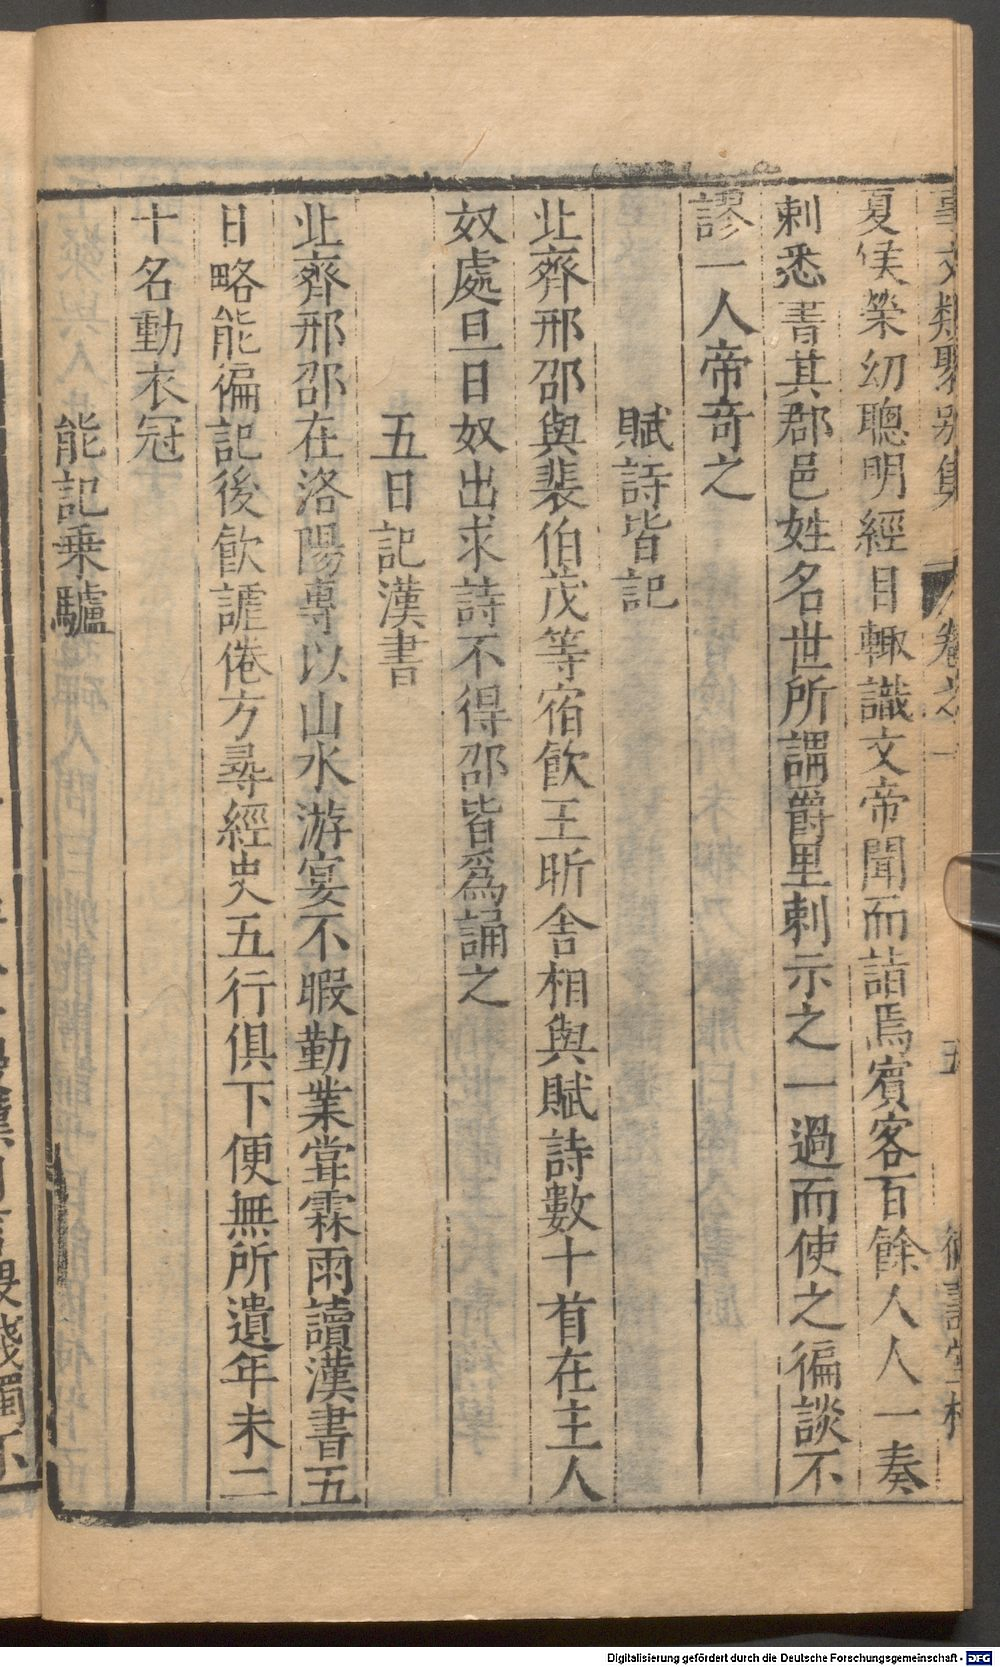 事文類聚別集 卷之一 五 德壽堂梓
夏侯榮幼聰明經目輙識文帝聞而詣焉賓客百餘人人一奏
刺悉書其郡邑姓名世所謂爵里刺示之一過而使之徧談不
謬一人帝奇之
賦詩皆記
北齊邢邵與裴伯茂等宿飲王昕舍相與賦詩數十首在主人
奴處旦日奴出求詩不得邵皆爲誦之
五日記漢書
北齊邢邵在洛陽專以山水游宴不暇勤業甞霖雨讀漢書五
日略能徧記後飲謔倦方尋經史五行俱下便無所遺年未二
十名動衣冠
能記乗驢
Digitalisierung gefördert durch die Deutsche Forschungsgemeinschaft - DFG